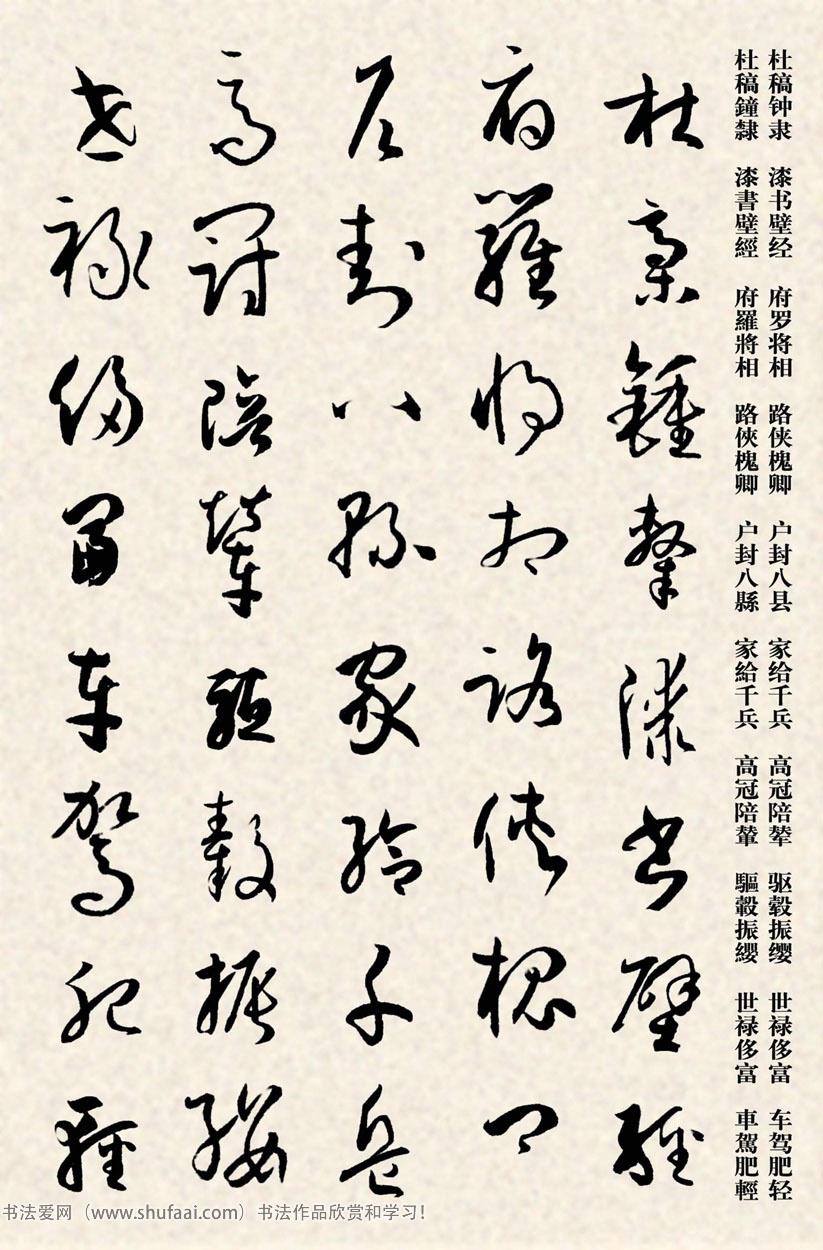 杜稿钟隶 漆书壁经 府罗将相 路侠槐卿 户封八县 家给千兵 高冠陪辇 驱毂振缨 世禄侈富 车驾肥轻
杜稿鐘隸 漆書壁經 府羅將相 路俠槐卿 户封八縣 家給千兵 高冠陪輦 驅轂振纓 世禄侈富 車駕肥輕
杜稿鍾隸漆書壁經
府羅將相路俠槐卿
户封八縣家給千兵
高冠陪輦驅轂振纓
世禄侈富車駕肥輕
书法爱网（www.shufaai.com）书法作品欣赏和学习！